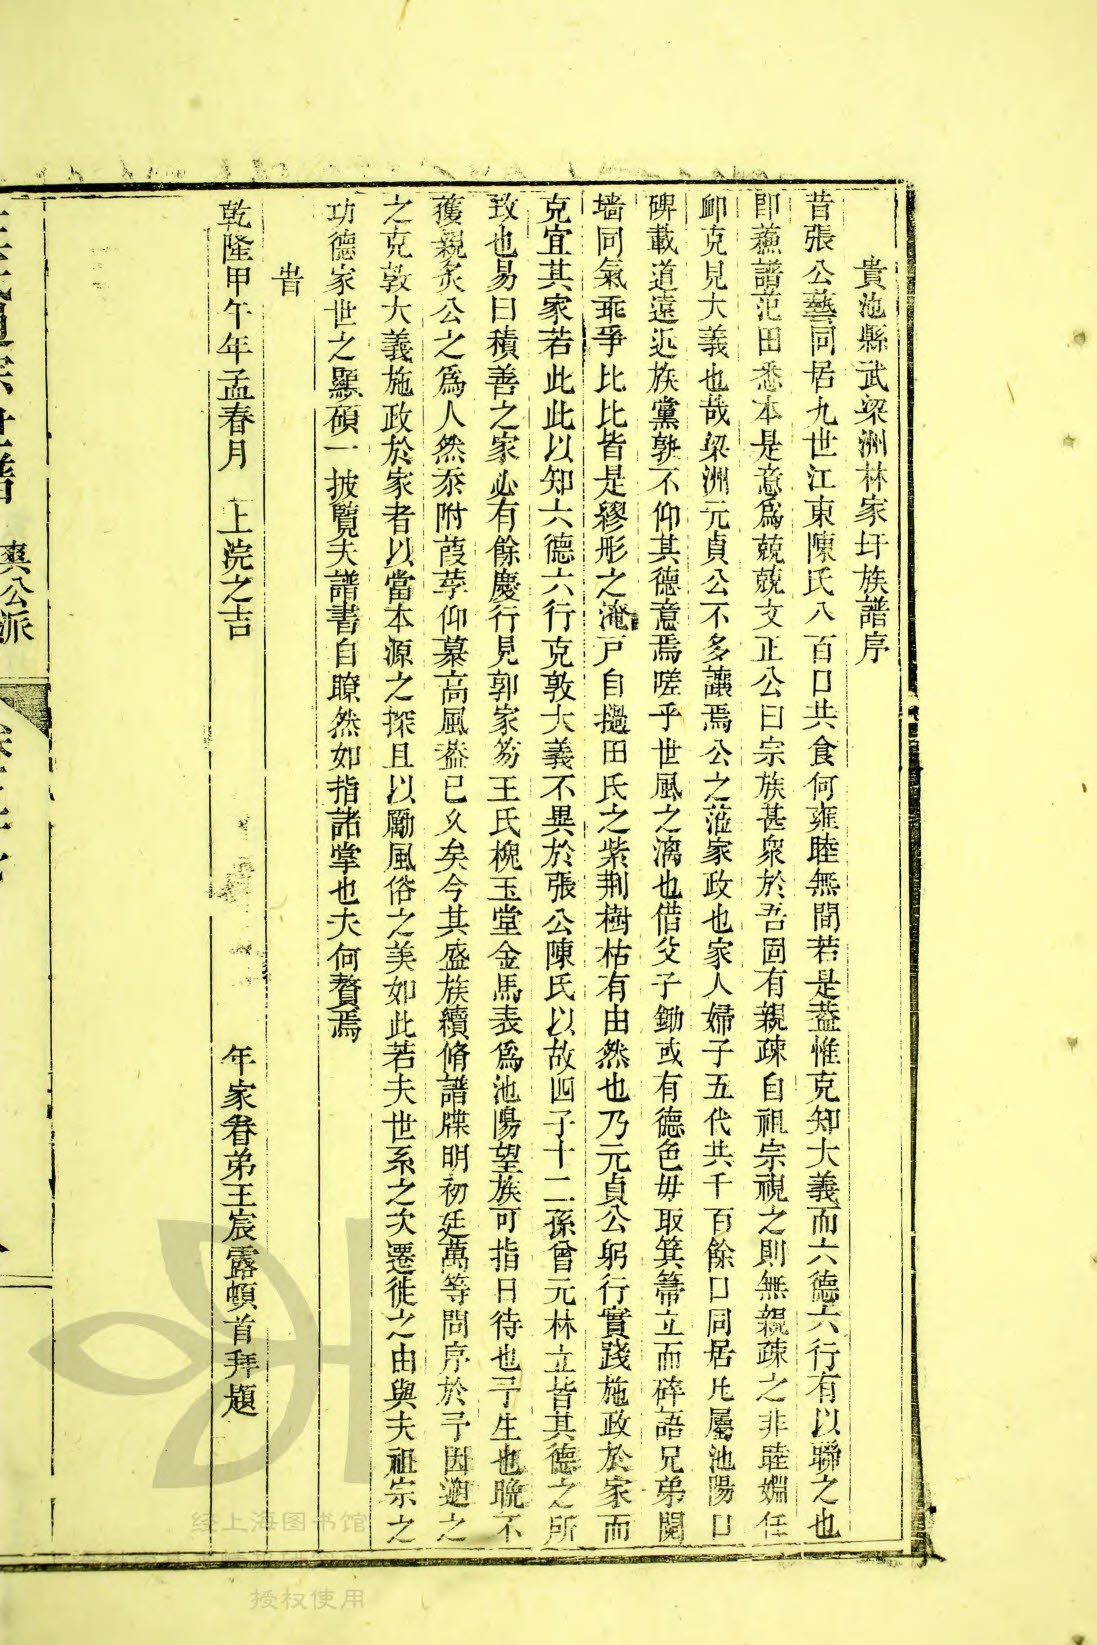 貴池縣武梁洲林家圩族譜序
昔張公藝同居九世江東陳氏八百口共食何雍睦無間若是葢惟克知大義而六德六行有以聯之也
即蘓譜范田悉本是意爲兢兢文正公曰宗族甚衆於吾固有親疎自祖宗視之則無親疎之非睦婣任
卹克見大義也哉梁洲元貞公不多讓焉公之蒞家政也家人婦子五代共千百餘口同居比屬池陽口
碑載道遠近族黨孰不仰其德意焉嗟乎世風之漓也借父子鋤或有德色毋取箕箒立而誶語兄弟鬩
墻同氣乖爭比比皆是繆彤之淹戸自撾田氏之紫荆樹枯有由然也乃元貞公躬行實踐施政於家而
克宜其家若此此以知六德六行克敦大義不異於張公陳氏以故四子十二孫曾元林立皆其德之所
致也易曰積善之家必有餘慶行見郭家笏王氏槐玉堂金馬表爲池陽望族可指日待也予生也晚不
獲親炙公之爲人然忝附葭莩仰慕高風葢已乆矣今其盛族續脩譜牒明初廷萬等問序於予因遡之
之克敦大義施政於家者以當本源之探且以勵風俗之美如此若夫世系之次遷徙之由與夫祖宗之
功德家世之顯碩一披覽夫譜書自瞭然如指諸掌也夫何贅焉
旹
乾隆甲午年孟春月 上浣之吉 年家眷弟王宸露頓首拜題
氏通宗世譜 公派
经上海图书馆
授权使用